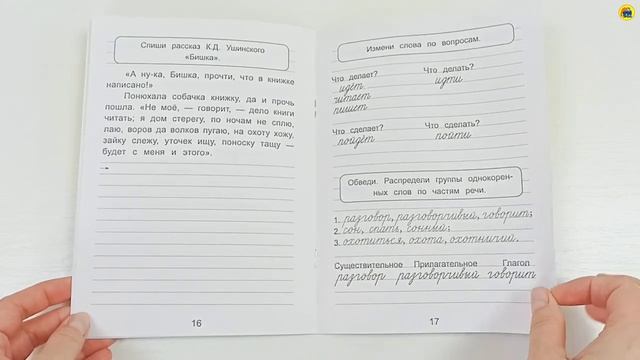 Спиши рассказ К.Д. Ушинского
«Бишка».
«А ну-ка, Бишка, прочти, что в книжке
написано!»
Понюхала собачка книжку, да и прочь
пошла. «Не моё, — говорит, — дело книги
читать; я дом стерегу, по ночам не сплю,
лаю, воров да волков пугаю, на охоту хожу,
зайку слежу, уточек ищу, поноску тащу —
будет с меня и этого».
16
Измени слова по вопросам.
Что делает? Что делать?
идёт идти
читает
пишет
Что сделает? Что сделать?
пойдёт пойти
Обведи. Распредели группы однокорен-
ных слов по частям речи.
1. разговор, разговорчивый, говорит;
2. сон, спать, сонный;
3. охотиться, охота, охотничий.
Существительное Прилагательное Глагол
разговор разговорчивый говорит
17